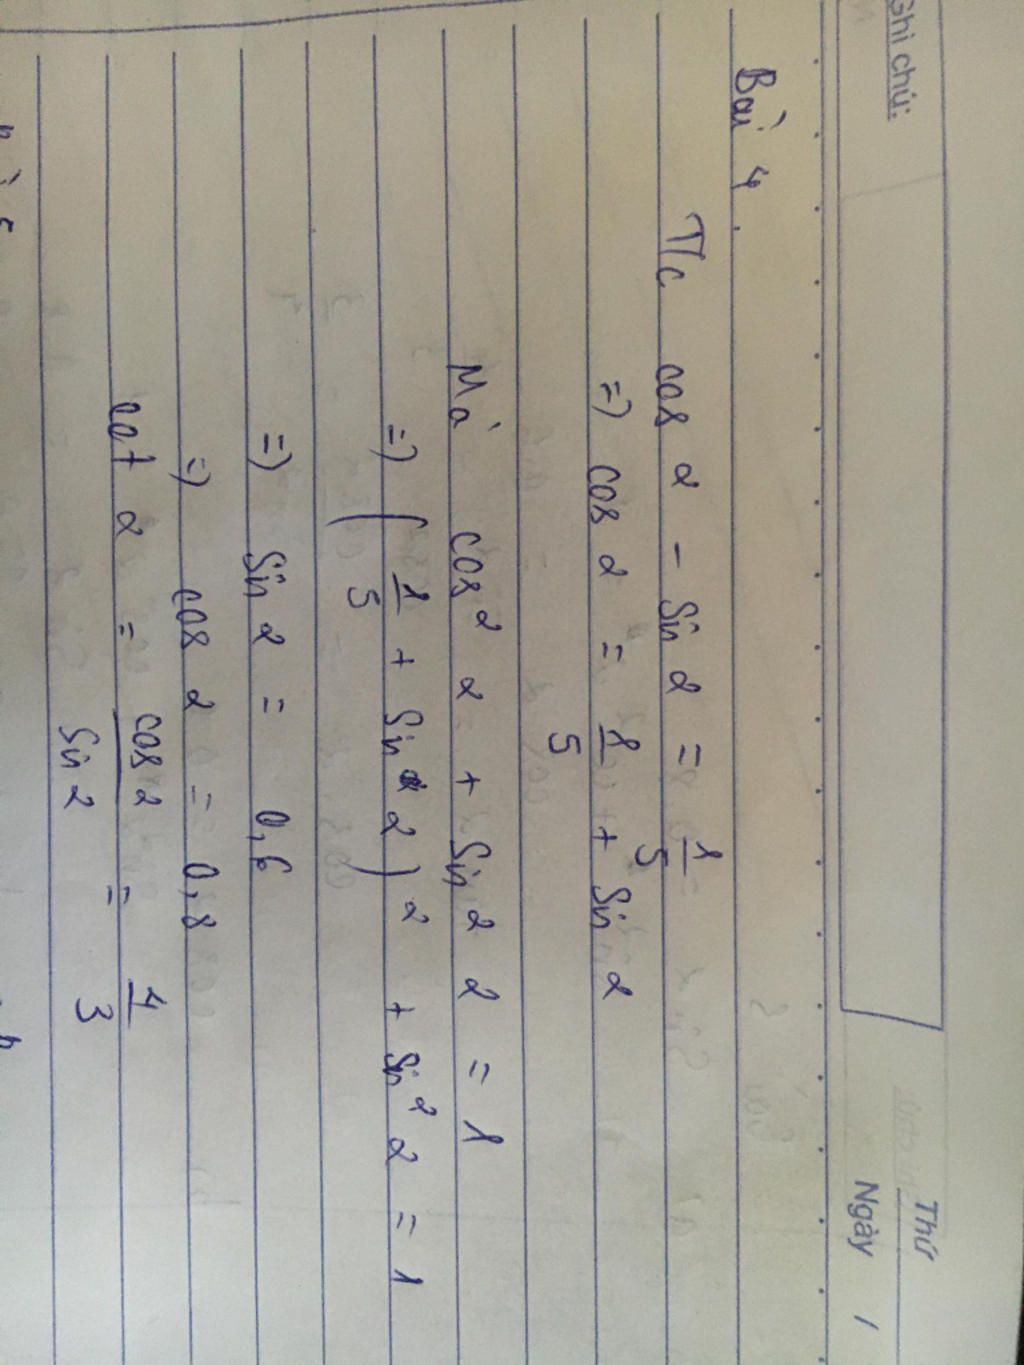 Ghi chú:
Thứ
Ngày /
Bài 4.
Tlc cos α - Sin α = 1/5
=) cos α = 1/5 + Sin α
Mà cos² α + Sin² α = 1
=) (1/5 + Sin α)² + Sin² α = 1
=) Sin α = 0,6
=) cos α = 0,8
cot α = cos α/Sin α = 4/3